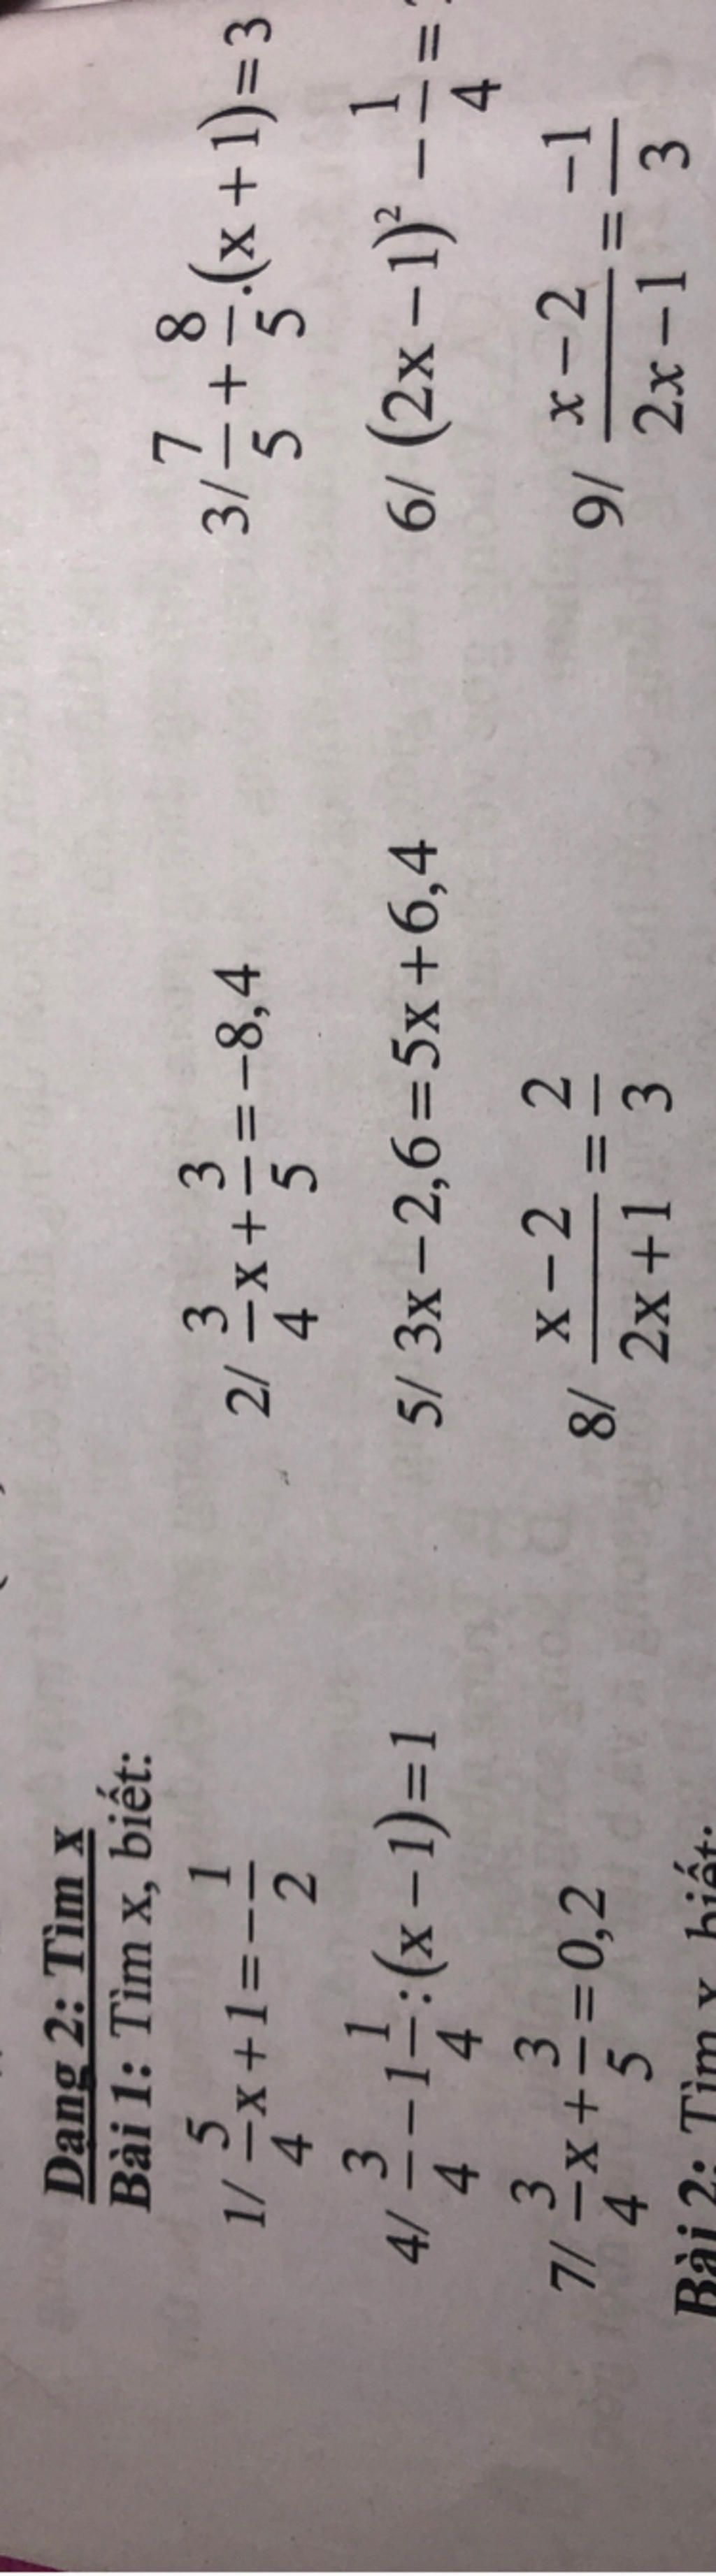 Dạng 2: Tìm x
Bài 1: Tìm x, biết:
1/ 5/4 x + 1 = -1/2
2/ 3/4 x + 3/5 = -8,4
3/ 7/5 + 8/5 .(x + 1) = 3
4/ 3/4 - 1 1/4 : (x - 1) = 1
5/ 3x - 2,6 = 5x + 6,4
6/ (2x - 1)² - 1/4 =
7/ 3/4 x + 3/5 = 0,2
8/ x - 2 / 2x + 1 = 2/3
9/ x - 2 / 2x - 1 = -1/3
Bài 2: Tìm x, biết: